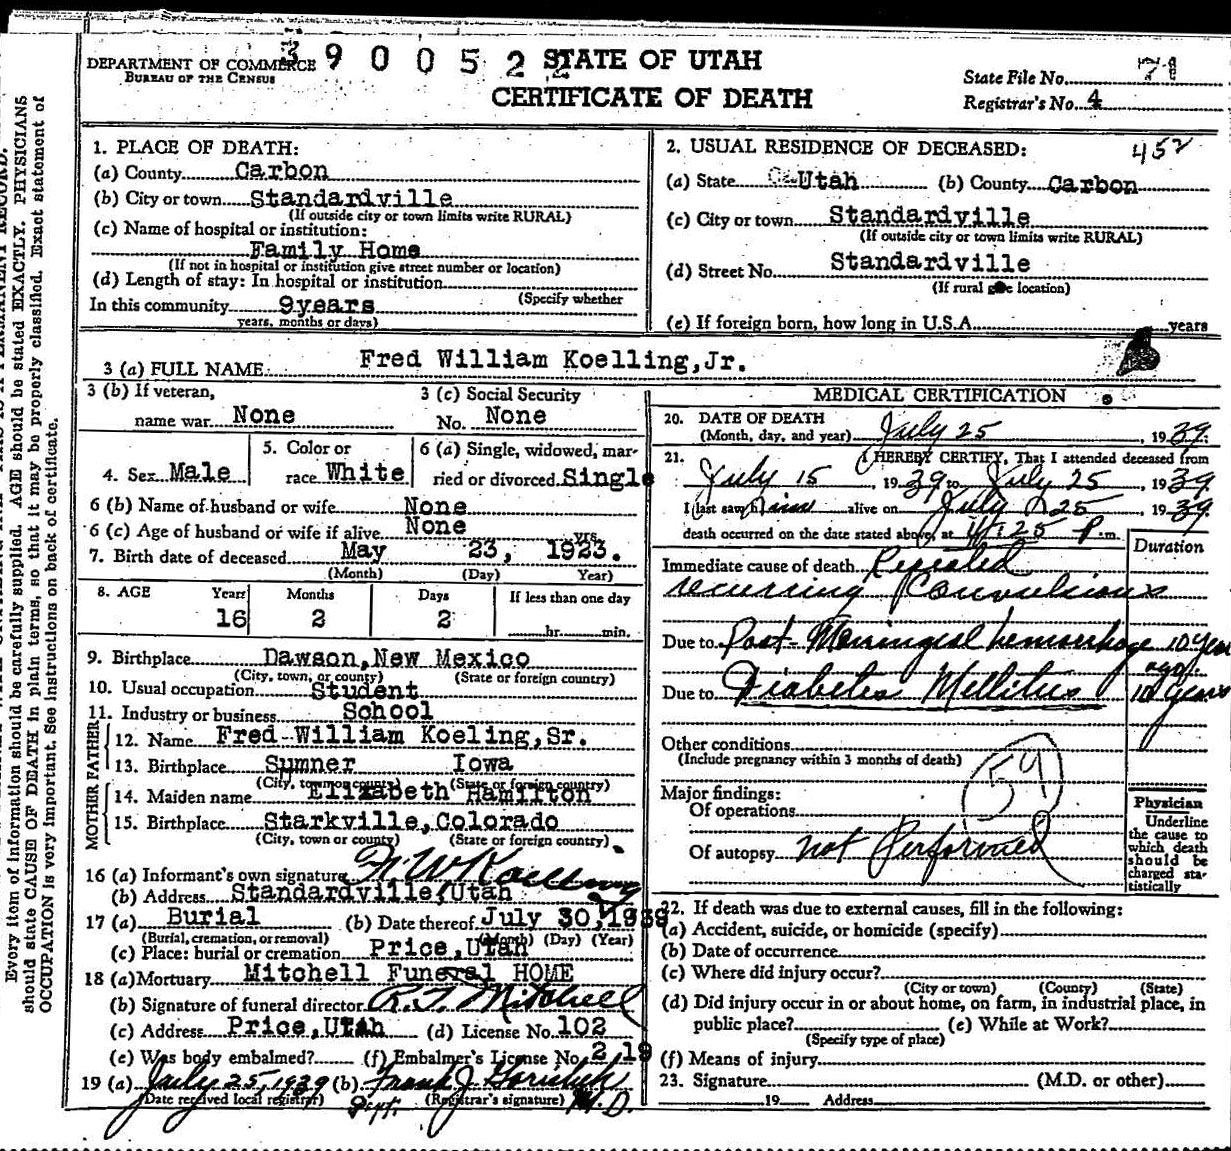 390052 2
DEPARTMENT OF COMMERCE
BUREAU OF THE CENSUS
STATE OF UTAH
CERTIFICATE OF DEATH
State File No. 71
Registrar's No. 4
1. PLACE OF DEATH:
(a) County Carbon
(b) City or town Standardville
(If outside city or town limits write RURAL)
(c) Name of hospital or institution:
Family Home
(If not in hospital or institution give street number or location)
(d) Length of stay: In hospital or institution
(Specify whether
In this community 9years
years, months or days)
2. USUAL RESIDENCE OF DECEASED: 452
(a) State Utah (b) County Carbon
(c) City or town Standardville
(If outside city or town limits write RURAL)
(d) Street No. Standardville
(If rural give location)
(e) If foreign born, how long in U.S.A. years
3 (a) FULL NAME Fred William Koelling,Jr.
3 (b) If veteran,
name war None
3 (c) Social Security
No. None
4. Sex Male
5. Color or
race White
6 (a) Single, widowed, mar-
ried or divorced Single
6 (b) Name of husband or wife None
6 (c) Age of husband or wife if alive None yrs.
7. Birth date of deceased May 23, 1923.
(Month) (Day) Year)
8. AGE Years Months Days If less than one day
16 2 2 hr. min.
9. Birthplace Dawson,New Mexico
(City, town, or county) (State or foreign country)
10. Usual occupation Student
11. Industry or business School
FATHER
12. Name Fred William Koeling,Sr.
13. Birthplace Sumner Iowa
(City, town or county) (State or foreign country)
MOTHER
14. Maiden name Elizabeth Hamilton
15. Birthplace Starkville,Colorado
(City, town or county) (State or foreign country)
16 (a) Informant's own signature F. W Koelling
(b) Address Standardville,Utah
17 (a) Burial (b) Date thereof July 30,1939
(Burial, cremation, or removal) (Month) (Day) (Year)
(c) Place: burial or cremation Price,Utah
18 (a)Mortuary Mitchell Funeral HOME
(b) Signature of funeral director R. T. Mitchell
(c) Address Price,Utah (d) License No. 102
(e) Was body embalmed? (f) Embalmer's License No. 219
19 (a) July 25, 1939 (b) Frank J.
(Date received local registrar) (Registrar's signature) M.D.
MEDICAL CERTIFICATION
20. DATE OF DEATH
(Month, day, and year) July 25, 1939
21. I HEREBY CERTIFY, That I attended deceased from
July 15, 1939 to July 25, 1939
I last saw him alive on July 25, 1939
death occurred on the date stated above, at 25 P. m.
Duration
Immediate cause of death Repeated
recurring Convulsions
Due to Post-Meningeal hemorrhage 10 year
ago
Due to Diabetes Mellitus 10 years
Other conditions
(Include pregnancy within 3 months of death)
59
Major findings:
Of operations
Of autopsy not Performed
Physician
Underline
the cause to
which death
should be
charged sta-
tistically
22. If death was due to external causes, fill in the following:
(a) Accident, suicide, or homicide (specify)
(b) Date of occurrence
(c) Where did injury occur?
(City or town) (County) (State)
(d) Did injury occur in or about home, on farm, in industrial place, in
public place? (e) While at Work?
(Specify type of place)
(f) Means of injury
23. Signature (M.D. or other)
19 Address
Every item of information should be carefully supplied. AGE should be stated EXACTLY. PHYSICIANS
should state CAUSE OF DEATH in plain terms, so that it may be properly classified. Exact statement of
OCCUPATION is very important. See instructions on back of certificate.